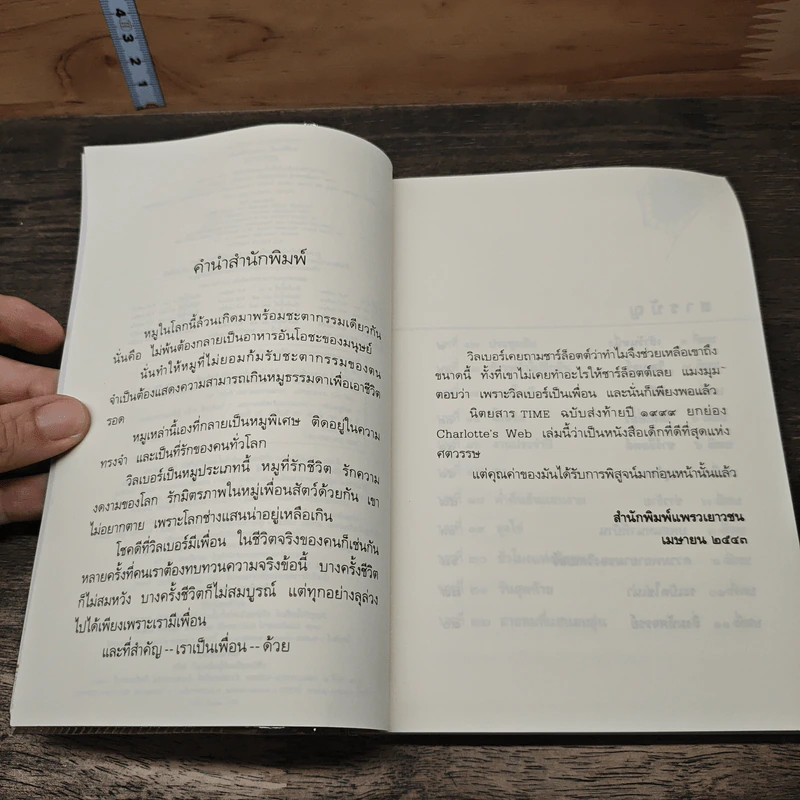 4
3
2
1
คำนำสำนักพิมพ์
หมูในโลกนี้ล้วนเกิดมาพร้อมชะตากรรมเดียวกัน
นั่นคือ ไม่พ้นต้องกลายเป็นอาหารอันโอชะของมนุษย์
นั่นทำให้หมูที่ไม่ยอมก้มรับชะตากรรมของตน
จำเป็นต้องแสดงความสามารถเกินหมูธรรมดาเพื่อเอาชีวิต
รอด
หมูเหล่านี้เองที่กลายเป็นหมูพิเศษ ติดอยู่ในความ
ทรงจำ และเป็นที่รักของคนทั่วโลก
วิลเบอร์เป็นหมูประเภทนี้ หมูที่รักชีวิต รักความ
งดงามของโลก รักมิตรภาพในหมู่เพื่อนสัตว์ด้วยกัน เขา
ไม่อยากตาย เพราะโลกช่างแสนน่าอยู่เหลือเกิน
โชคดีที่วิลเบอร์มีเพื่อน ในชีวิตจริงของคนก็เช่นกัน
หลายครั้งที่คนเราต้องทบทวนความจริงข้อนี้ บางครั้งชีวิต
ก็ไม่สมหวัง บางครั้งชีวิตก็ไม่สมบูรณ์ แต่ทุกอย่างลุล่วง
ไปได้เพียงเพราะเรามีเพื่อน
และที่สำคัญ -- เราเป็นเพื่อน -- ด้วย
วิลเบอร์เคยถามชาร์ล็อตต์ว่าทำไมจึงช่วยเหลือเขาถึง
ขนาดนี้ ทั้งที่เขาไม่เคยทำอะไรให้ชาร์ล็อตต์เลย แมงมุม
ตอบว่า เพราะวิลเบอร์เป็นเพื่อน และนั่นก็เพียงพอแล้ว
นิตยสาร TIME ฉบับส่งท้ายปี ๑๙๙๙ ยกย่อง
Charlotte's Web เล่มนี้ว่าเป็นหนังสือเด็กที่ดีที่สุดแห่ง
ศตวรรษ
แต่คุณค่าของมันได้รับการพิสูจน์มาก่อนหน้านั้นแล้ว
สำนักพิมพ์แพรวเยาวชน
เมษายน ๒๕๔๓
สารบัญ